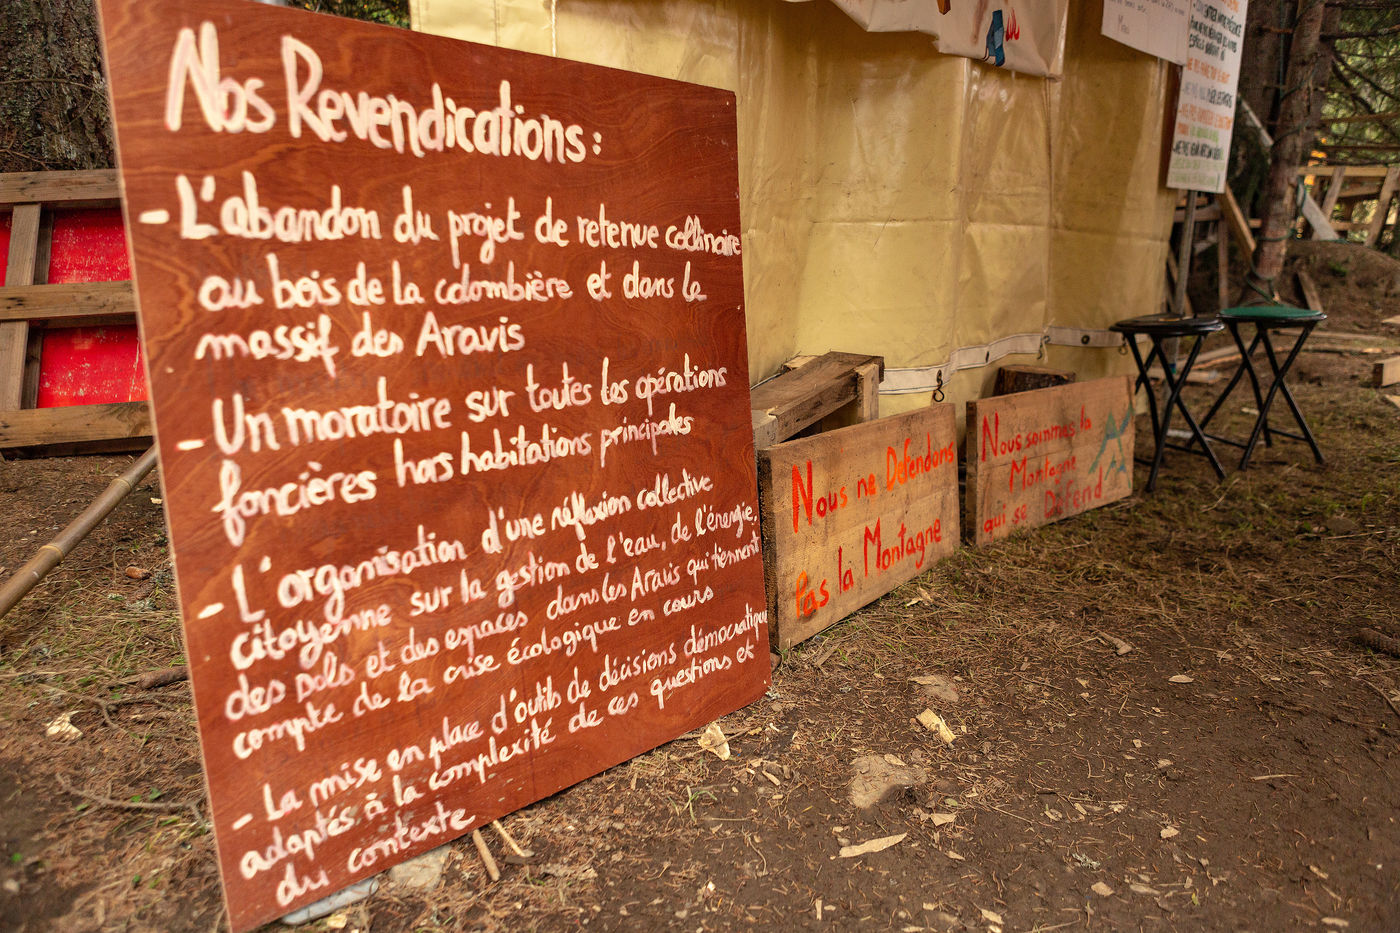 Nos Revendications :
- L'abandon du projet de retenue collinaire
au bois de la colombière et dans le
massif des Aravis
- Un moratoire sur toutes les opérations
foncières hors habitations principales
- L'organisation d'une réflexion collective
citoyenne sur la gestion de l'eau, de l'énergie,
des sols et des espaces dans les Aravis qui tiennent
compte de la crise écologique en cours
- La mise en place d'outils de décisions démocratique
adaptés à la complexité de ces questions et
du contexte
Nous ne Défendons
Pas la Montagne
Nous sommes la
Montagne
qui se Défend